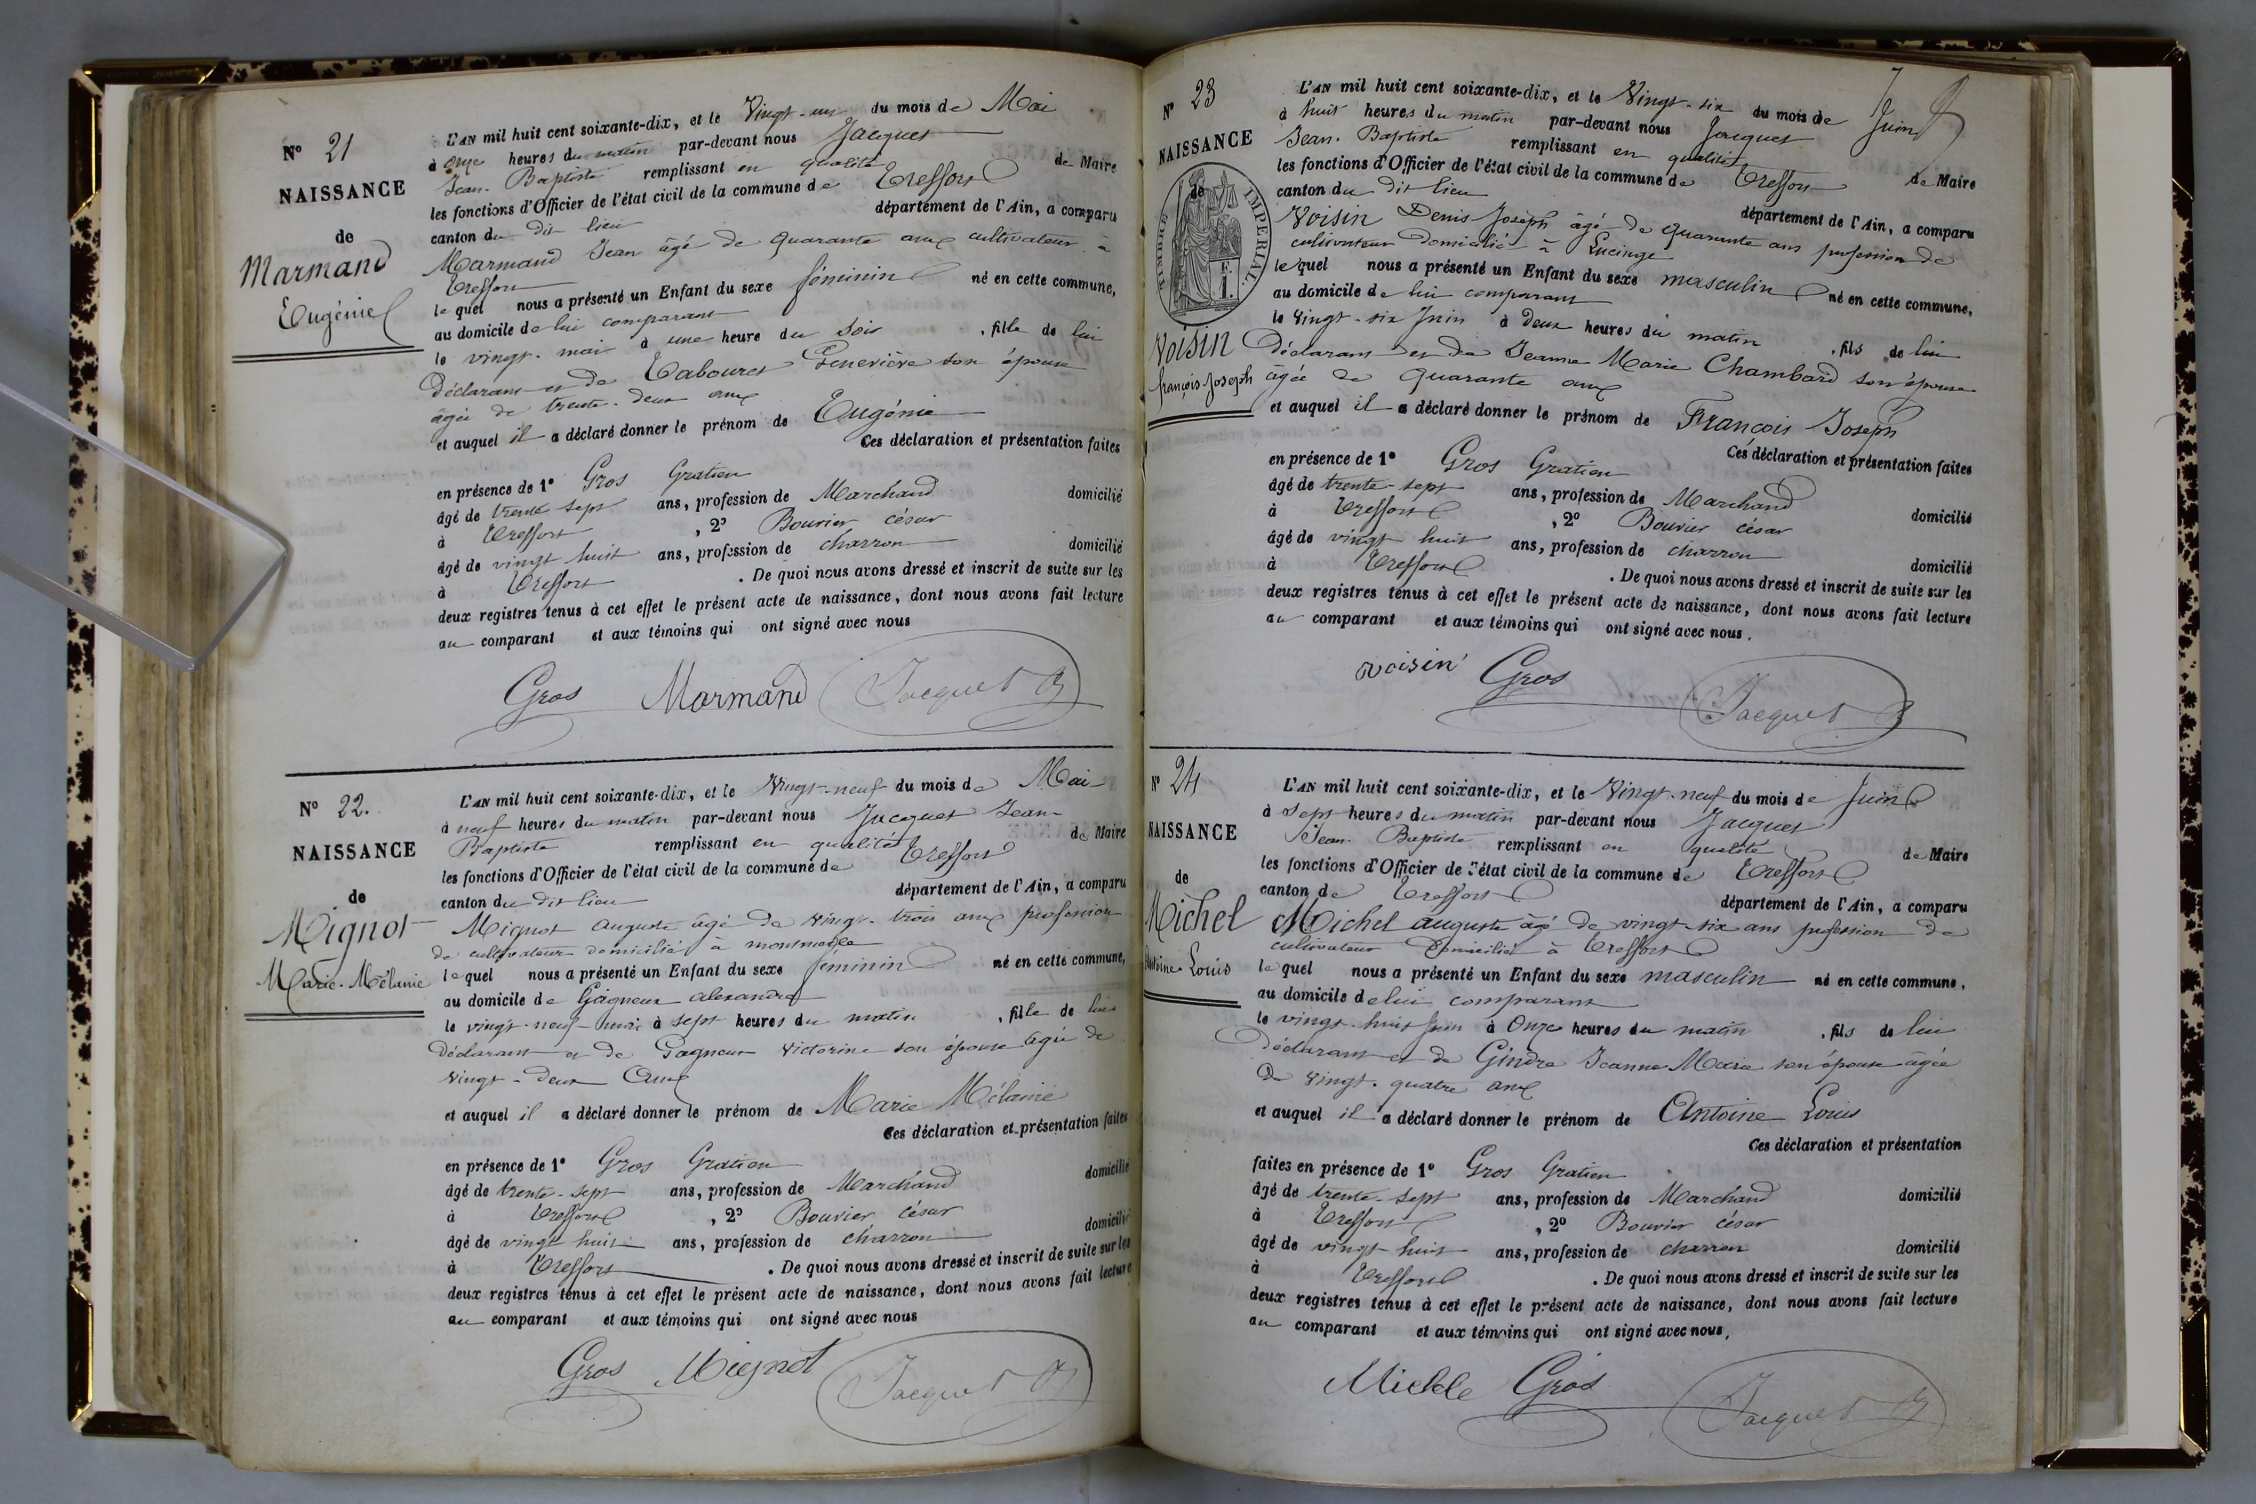 N° 21
NAISSANCE
de
Marmand
Eugénie
L'AN mil huit cent soixante-dix, et le Vingt-un du mois de Mai
à onze heures du matin par-devant nous Jacquet
Jean-Baptiste remplissant en qualité de Maire
les fonctions d'Officier de l'état civil de la commune de Treffort
canton du dit lieu département de l'Ain, a comparu
Marmand Jean âgé de quarante ans cultivateur à
Treffort
lequel nous a présenté un Enfant du sexe féminin né en cette commune,
au domicile de lui comparant
le vingt-mai à une heure du soir, fille de lui
Déclarant et de Tabouret Geneviève son épouse
âgée de trente-deux ans
et auquel il a déclaré donner le prénom de Eugénie
Ces déclaration et présentation faites
en présence de 1° Gros Gratien
âgé de trente sept ans, profession de Marchand domicilié
à Treffort, 2° Bouvier César
âgé de vingt huit ans, profession de charron domicilié
à Treffort. De quoi nous avons dressé et inscrit de suite sur les
deux registres tenus à cet effet le présent acte de naissance, dont nous avons fait lecture
au comparant et aux témoins qui ont signé avec nous
Gros Marmand Jacquet
N° 22.
NAISSANCE
de
Mignot
Marie-Mélanie
L'AN mil huit cent soixante-dix, et le Vingt-neuf du mois de Mai
à neuf heures du matin par-devant nous Jacquet Jean-
Baptiste remplissant en qualité de Maire
les fonctions d'Officier de l'état civil de la commune de Treffort
canton du dit lieu département de l'Ain, a comparu
Mignot Auguste âgé de vingt-trois ans profession
de cultivateur domicilié à
lequel nous a présenté un Enfant du sexe féminin né en cette commune,
au domicile de Gagneur Alexandre
le vingt-neuf mai à sept heures du matin, fille de lui
Déclarant et de Gagneur Victorine son épouse âgée de
vingt-deux ans
et auquel il a déclaré donner le prénom de Marie Mélanie
Ces déclaration et présentation faites
en présence de 1° Gros Gratien
âgé de trente-sept ans, profession de Marchand domicilié
à Treffort, 2° Bouvier César
âgé de vingt huit ans, profession de charron domicilié
à Treffort. De quoi nous avons dressé et inscrit de suite sur les
deux registres tenus à cet effet le présent acte de naissance, dont nous avons fait lecture
au comparant et aux témoins qui ont signé avec nous
Gros Mignot Jacquet
N° 23
NAISSANCE
de
TIMBRE IMPERIAL
Voisin
françois-Joseph
L'AN mil huit cent soixante-dix, et le Vingt-six du mois de Juin
à huit heures du matin par-devant nous Jacquet
Jean-Baptiste remplissant en qualité de Maire
les fonctions d'Officier de l'état civil de la commune de Treffort
canton du dit lieu département de l'Ain, a comparu
Voisin Denis Joseph âgé de quarante ans profession de
cultivateur domicilié à Lucinge
lequel nous a présenté un Enfant du sexe masculin né en cette commune,
au domicile de lui comparant
le vingt-six Juin à deux heures du matin, fils de lui
Déclarant et de Jeanne Marie Chambard son épouse
âgée de quarante ans
et auquel il a déclaré donner le prénom de François Joseph
Ces déclaration et présentation faites
en présence de 1° Gros Gratien
âgé de trente-sept ans, profession de Marchand domicilié
à Treffort, 2° Bouvier César
âgé de vingt huit ans, profession de charron domicilié
à Treffort. De quoi nous avons dressé et inscrit de suite sur les
deux registres tenus à cet effet le présent acte de naissance, dont nous avons fait lecture
au comparant et aux témoins qui ont signé avec nous.
voisin Gros Jacquet
N° 24
NAISSANCE
de
Michel
Antoine Louis
L'AN mil huit cent soixante-dix, et le Vingt-neuf du mois de Juin
à sept heures du matin par-devant nous Jacquet
Jean-Baptiste remplissant en qualité de Maire
les fonctions d'Officier de l'état civil de la commune de Treffort
canton de Treffort département de l'Ain, a comparu
Michel auguste âgé de vingt-six ans profession de
cultivateur domicilié à Treffort
lequel nous a présenté un Enfant du sexe masculin né en cette commune,
au domicile de lui comparant
le vingt-huit Juin à Onze heures du matin, fils de lui
déclarant et de Gindre Jeanne-Marie son épouse âgée
de vingt-quatre ans
et auquel il a déclaré donner le prénom de Antoine Louis
Ces déclaration et présentation
faites en présence de 1° Gros Gratien
âgé de trente-sept ans, profession de Marchand domicilié
à Treffort, 2° Bouvier César
âgé de vingt-huit ans, profession de charron domicilié
à Treffort. De quoi nous avons dressé et inscrit de suite sur les
deux registres tenus à cet effet le présent acte de naissance, dont nous avons fait lecture
au comparant et aux témoins qui ont signé avec nous,
Michele Gros Jacquet